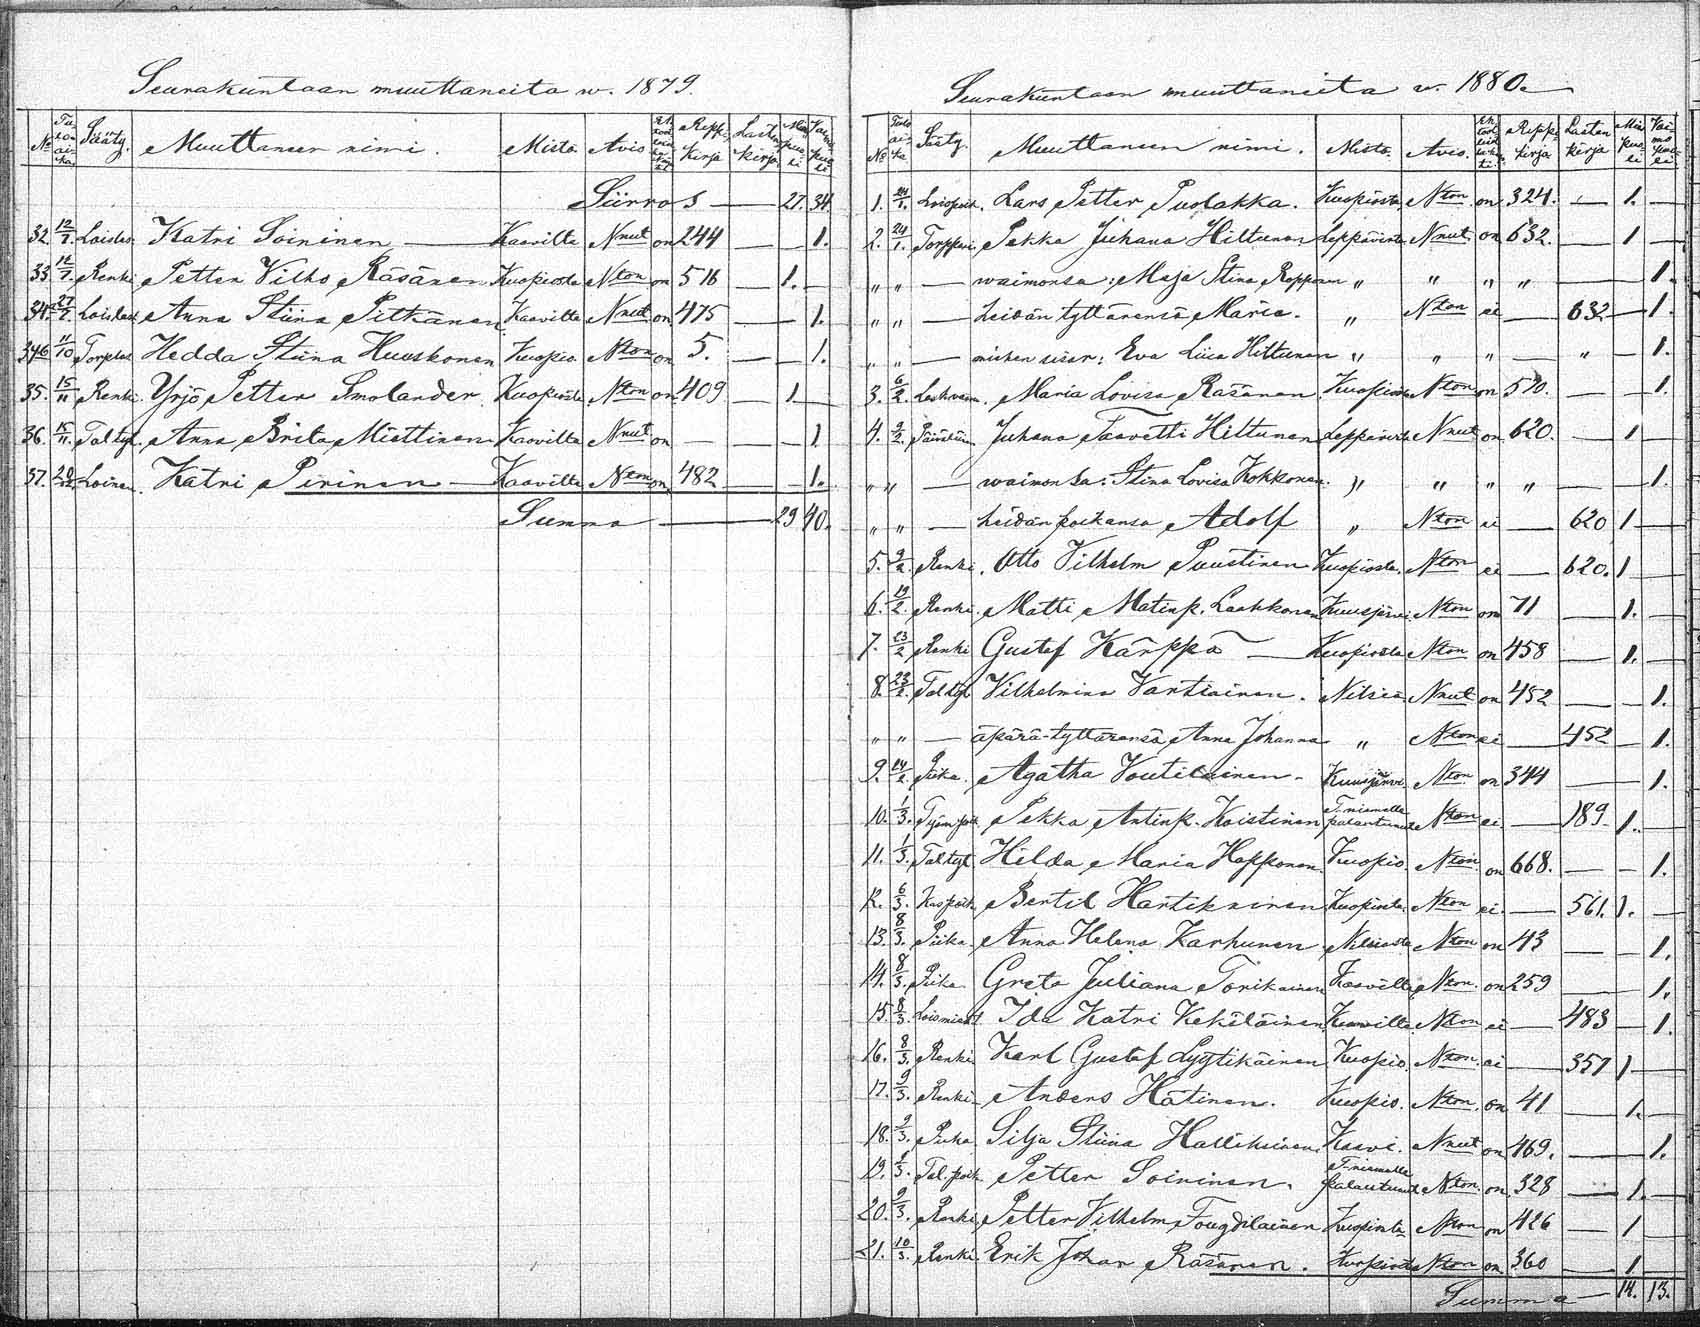 Seurakuntaan muuttaneita w. 1879.
No Tuloaika. Sääty. Muuttaneen nimi. Mistä Avis Rippikirja Lastenkirja Miespuolei Vaimopuolei
Siirros — 27. 34.
32. 12/7. Loistes. Katri Soininen — Kaavilta Nnut on 244 — — 1.
33. 14/7. Renki Petter Vilho Räsänen Kuopiosta Nton on 516 — 1. —
34. 27/7. Loislest. Anna Stiina Pitkänen Kaavilta Nnut on 475 — 1.
34b 11/10 Torplest Hedda Stiina Huuskonen Kuopio. Nton on 5. — 1.
35. 15/11 Renki. Yrjö Petter Smolander. Kuopiosta Nton on 409 — 1
36. 15/11. Taltyt. Anna Brita Miettinen Kaavilta Nnut on — — 1.
37. 20/12. Loinen. Katri Pirinen — Kaavilta Nton on 482 — 1.
Summa — 29 40.
Seurakuntaan muuttaneita w. 1880.
No Tuloaika Sääty. Muuttaneen nimi. Mistä. Avis. Rippikirja. Lastenkirja Miespuolei Vaimopuolei
1. 24/1. Loispoik. Lars Petter Puolakka. Kuopiosta. Nton. on 324. — 1. —
2. 24/1. Torppari. Pekka Juhana Hiltunen Leppävirta Nnut. on 632. — 1 —
" " — waimonsa: Maja Stina Ropponen " " " " 1.
" " — heidän tyttärensä Maria. " Nton ei — 632 — 1.
" " — miehen sisar: Eva Liisa Hiltunen " " " — " — 1.
3. 6/2. Maria Lovisa Räsänen Kuopiosta Nton on 570. — — 1.
4. 9/2. Juhana Taavetti Hiltunen Leppävirta Nnut on 620. — 1 —
" " — waimonsa: Stina Lovisa Kokkonen. " " " " — 1.
" " — heidän poikansa Adolf " Nton ei — 620 1 —
5. 9/2. Renki. Otto Vilhelm Puustinen Kuopiosta. Nton ei — 620. 1 —
6. 19/2. Renki. Matti Matinp. Laakkonen Kuusjärvi. Nton on 71 — 1. —
7. 23/2 Renki Gustaf Kärppä — Kuopiosta Nton on 458 — 1. —
8. 23/2. Taltyt. Vilhelmina Vartiainen. Nilsiä. Nnut on 452 — 1.
" " — äpärä-tyttärensä Anna Johanna " Nton ei — 452 — 1.
9. 14/2. Piika. Agatha Voutilainen — Kuusjärvi. Nton. on 344 — — 1.
10. 1/3. Pekka Antinp. Koistinen T-niemelle palautunut Nton ei. — 189 — 1.
11. 1/3. Taltyt. Hilda Maria Happonen. Kuopio. Nton on 668. — — 1.
12. 6/3. Bertil Hartikainen Kuopiosta. Nton ei — 561. 1. —
13. 8/3. Piika. Anna Helena Karhunen Nilsiästä Nton on 43 — — 1.
14. 8/3. Piika. Greta Juliana Torikainen Kaavilta Nton. on 259 — 1.
15. 8/3. Ida Katri Kekäläinen Kaavilta. Nton ei — 483 — 1.
16. 8/3. Renki. Karl Gustaf Lyytikäinen Kuopio. Nton. ei — 357 1 —
17. 9/3. Renki. Anders Hätinen. Kuopio. Nton. on 41 — 1. —
18. 9/3. Piika Silja Stiina Hallikainen Kaavi. Nnut on 469. — 1.
19. 9/3. Tal.poik. Petter Soininen. T-niemelle palautunut Nton. on 328 — 1. —
20. 9/3. Renki. Petter Vilhelm Fougdilainen Kuopiosta Nton on 426 — 1
21. 10/3. Renki. Erik Johan Räsänen. Kuopiosta Nton on 360 — 1
Summa — 14. 13.